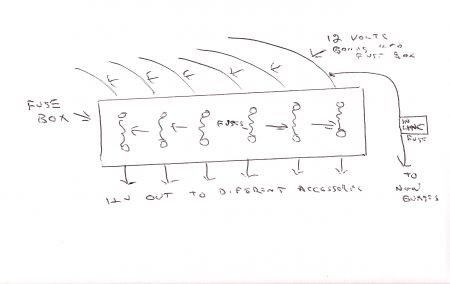 12 VOLTS
GOING INTO
FUSE BOX
FUSE
BOX
FUSES
IN
LINE
FUSE
12V OUT TO DIFFERENT ACCESSORIES
TO
NEW
GUAGES